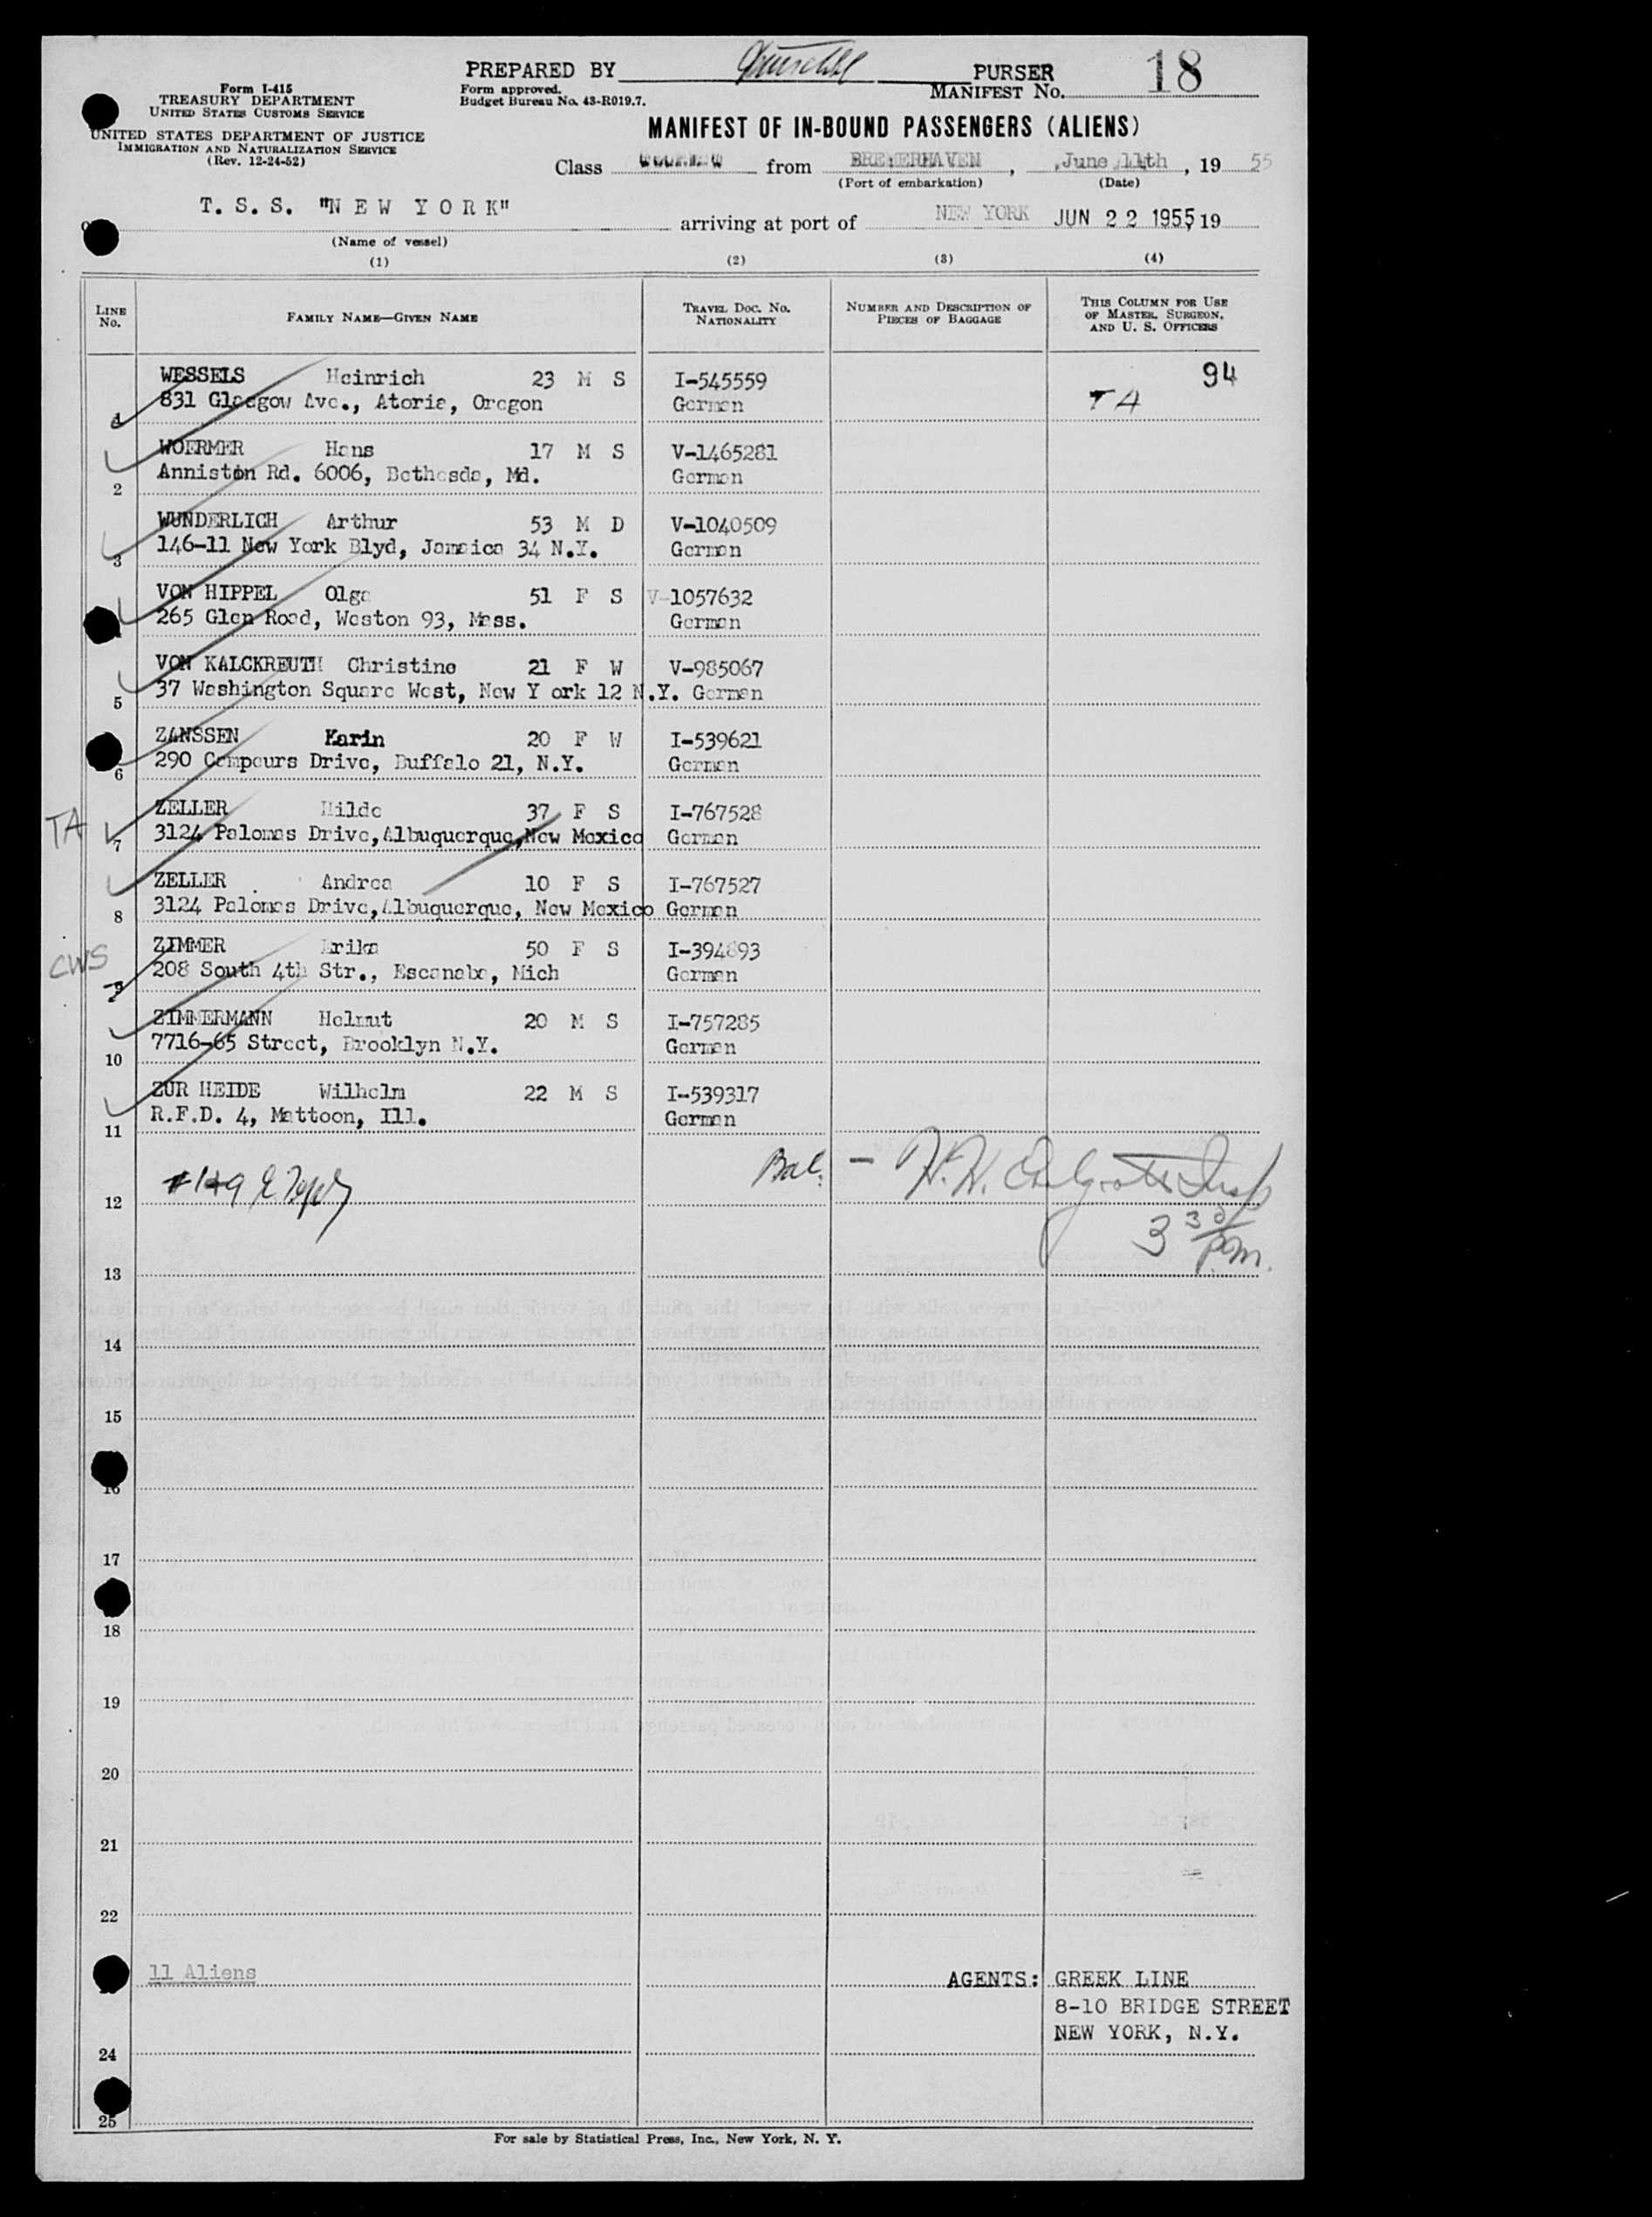 PREPARED BY PURSER 18
Form I-415
TREASURY DEPARTMENT
UNITED STATES CUSTOMS SERVICE
UNITED STATES DEPARTMENT OF JUSTICE
IMMIGRATION AND NATURALIZATION SERVICE
(Rev. 12-24-52)
Form approved.
Budget Bureau No. 43-R019.7.
MANIFEST No.
MANIFEST OF IN-BOUND PASSENGERS (ALIENS)
Class from BREMERHAVEN, June 11th, 19 55
(Port of embarkation) (Date)
T. S. S. "N E W Y O R K" arriving at port of NEW YORK JUN 22 1955, 19
(Name of vessel)
(1) (2) (3) (4)
LINE No. FAMILY NAME—GIVEN NAME TRAVEL DOC. No. NATIONALITY NUMBER AND DESCRIPTION OF PIECES OF BAGGAGE THIS COLUMN FOR USE OF MASTER, SURGEON, AND U. S. OFFICERS
WESSELS Heinrich 23 M S I-545559 94
1 831 Glasgow Ave., Atoria, Oregon German TA
WOERMER Hans 17 M S V-1465281
Anniston Rd. 6006, Bethesda, Md. German
2
WUNDERLICH Arthur 53 M D V-1040509
3 146-11 New York Blyd, Jamaica 34 N.Y. German
VON HIPPEL Olga 51 F S V-1057632
265 Glen Road, Weston 93, Mass. German
VON KALCKREUTH Christine 21 F W V-985067
37 Washington Square West, New Y ork 12 N.Y. German
5
ZANSSEN Karin 20 F W I-539621
290 Campours Drive, Buffalo 21, N.Y. German
6
ZELLER Hilde 37 F S I-767528
TA 7 3124 Palomas Drive,Albuquerque,New Mexico German
ZELLER Andrea 10 F S I-767527
8 3124 Palomas Drive,Albuquerque, New Mexico German
ZIMMER Erika 50 F S I-394893
CWS 9 208 South 4th Str., Escanaba, Mich German
ZIMMERMANN Helmut 20 M S I-757285
7716-65 Street, Brooklyn N.Y. German
10
ZUR HEIDE Wilhelm 22 M S I-539317
R.F.D. 4, Mattoon, Ill. German
11
Bal. -
12
3 30 p.m.
13
14
15
16
17
18
19
20
21
22
11 Aliens AGENTS: GREEK LINE
8-10 BRIDGE STREET
NEW YORK, N.Y.
24
25
For sale by Statistical Press, Inc., New York, N. Y.